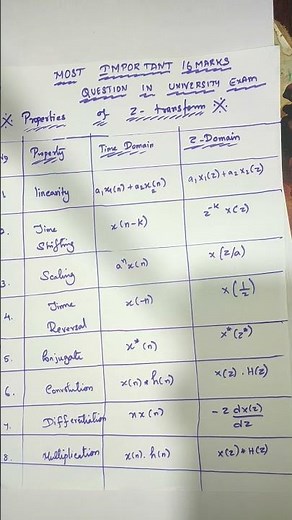 MOST IMPORTANT 16 MARKS
QUESTION IN UNIVERSITY EXAM
※ Properties of Z - transform ※
No Property Time Domain Z-Domain
1 linearity a₁x₁(n) + a₂x₂(n) a₁x₁(z) + a₂x₂(z)
2. Time Shifting x(n-k) z⁻ᵏ x(z)
3. Scaling aⁿx(n) x(z/a)
4. Time Reversal x(-n) x(1/z)
5. Conjugate x*(n) x*(z*)
6. Convolution x(n) * h(n) x(z) . H(z)
7. Differentiation nx(n) -z dx(z)/dz
8. Multiplication x(n) . h(n) x(z) * H(z)